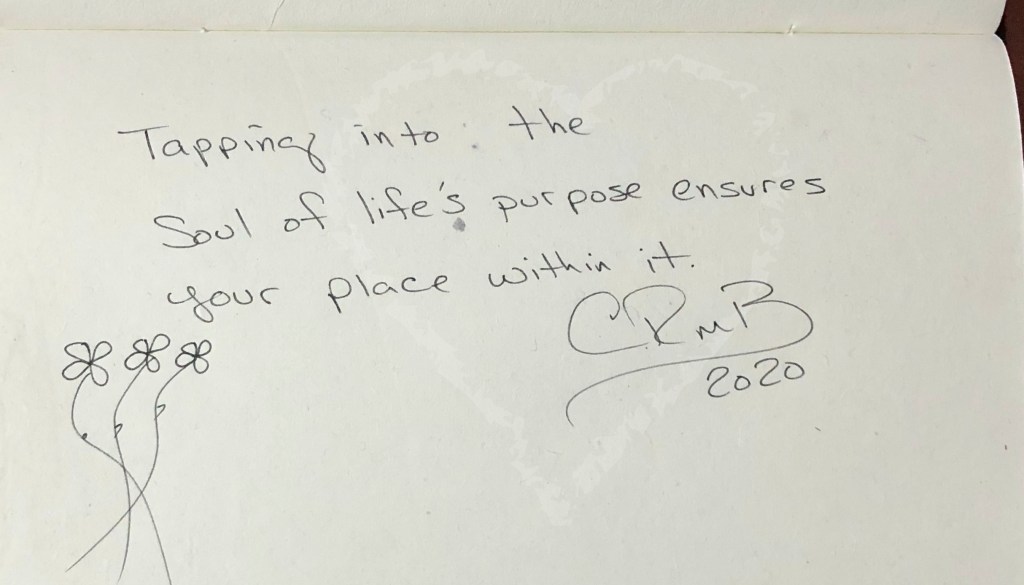 Tapping into the
Soul of life's purpose ensures
your place within it.
CRMB
2020